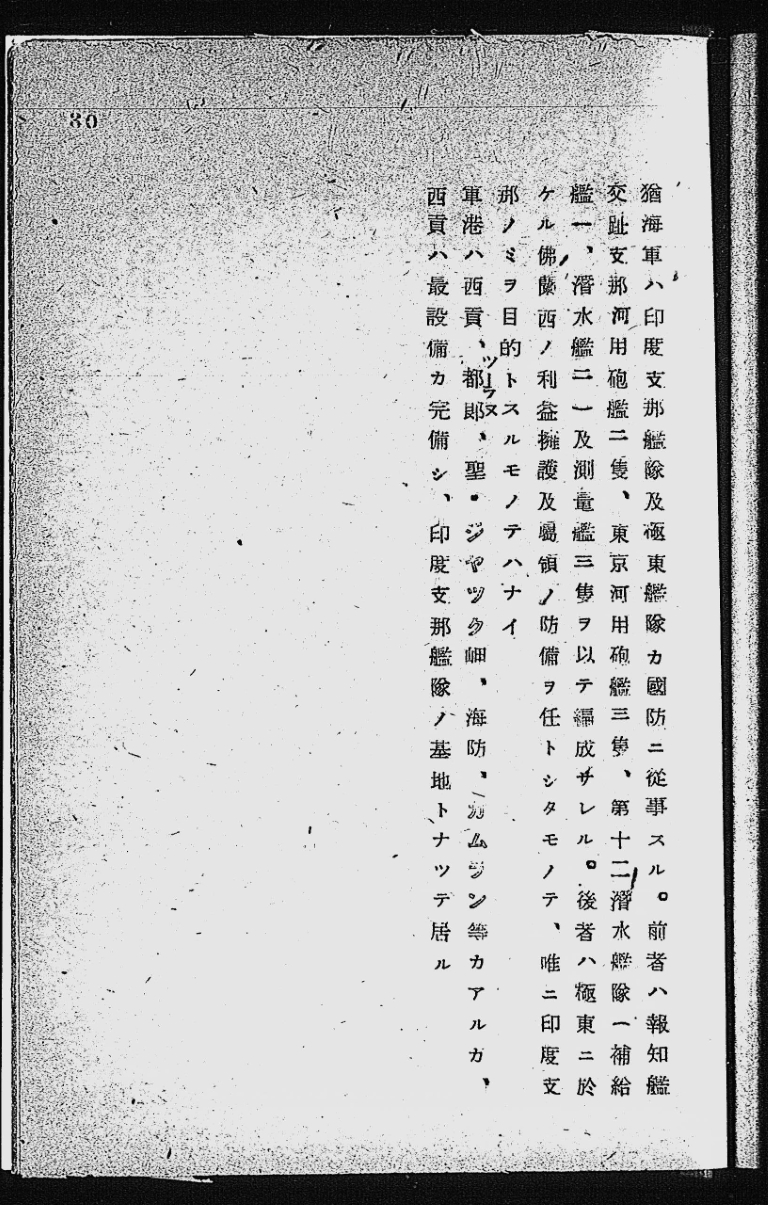 80
猶海軍ハ印度支那艦隊及極東艦隊カ國防ニ從事スル。前者ハ報知艦
交趾支那河用砲艦二隻、東京河用砲艦三隻、第十二潛水艦隊一補給
艦一、潛水艦二一及測量艦三隻ヲ以テ編成サレル。後者ハ極東ニ於
ケル佛蘭西ノ利益擁護及屬領ノ防備ヲ任トシタモノテ、唯ニ印度支
那ノミヲ目的トスルモノテハナイ
軍港ハ西貢、都郎、聖・ジヤツク岬、海防、カムラン等カアルカ、
ツーラヌ
西貢ハ最設備カ完備シ、印度支那艦隊ノ基地トナツテ居ル